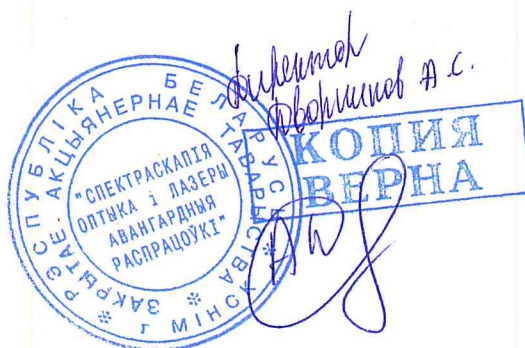 Директор
Дворников А.С.
КОПИЯ
ВЕРНА
РЭСПУБЛІКА БЕЛАРУСЬ
г МІНСК
ЗАКРЫТАЕ АКЦЫЯНЕРНАЕ ТАВАРЫСТВА
"СПЕКТРАСКАПІЯ
ОПТЫКА і ЛАЗЕРЫ
АВАНГАРДНЫЯ
РАСПРАЦОЎКІ"